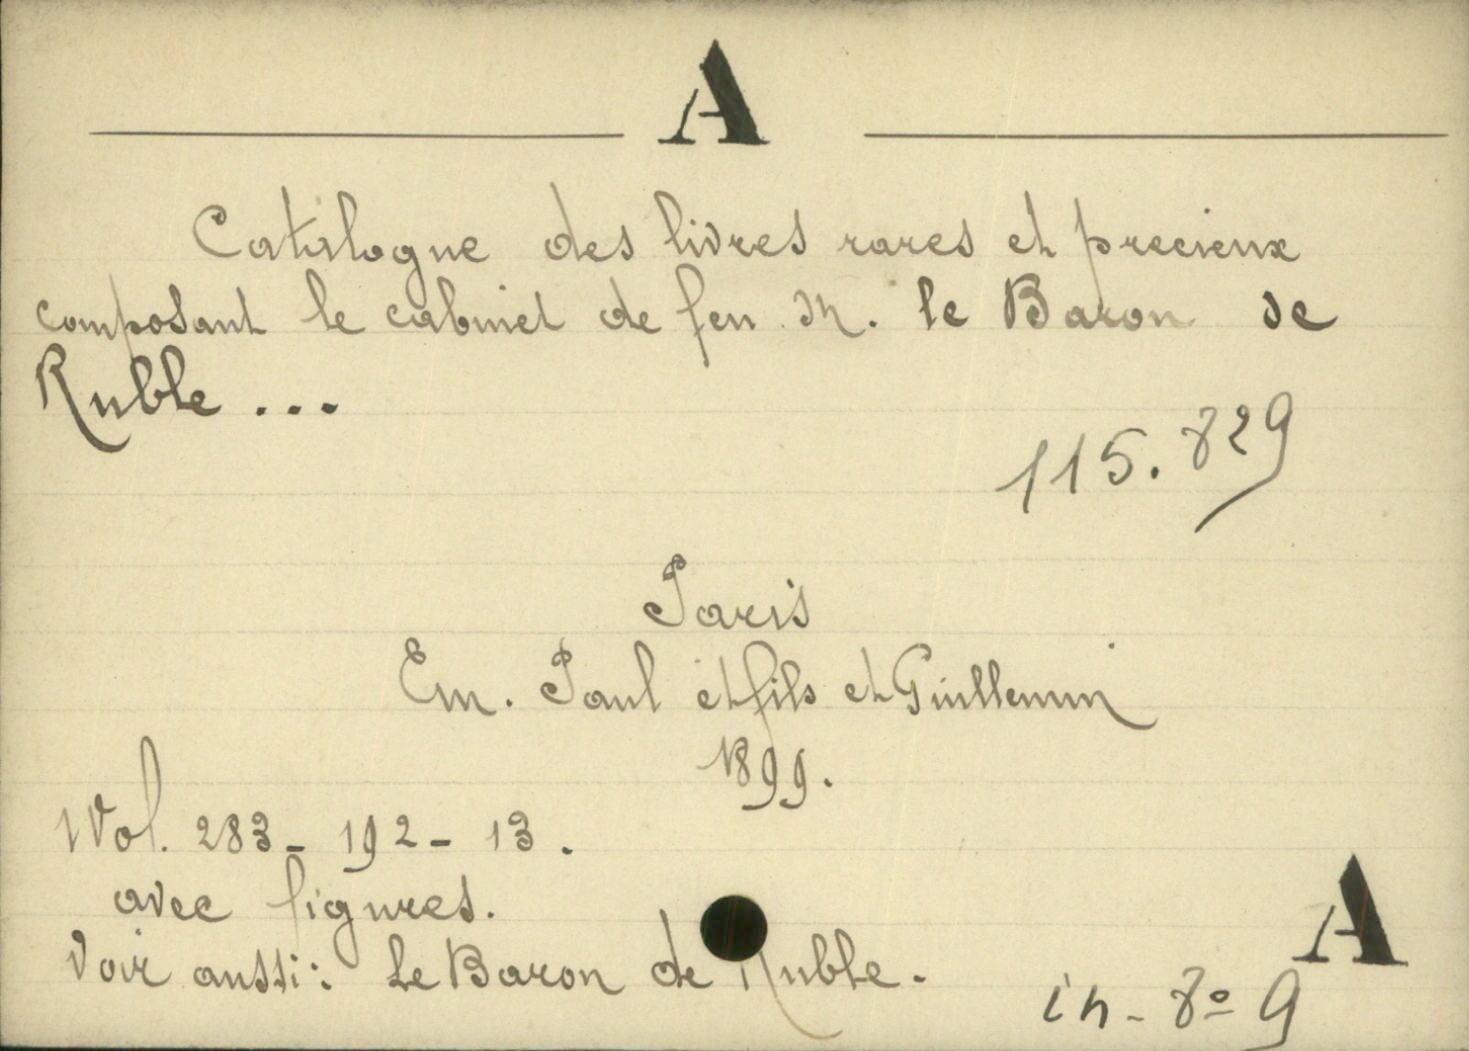 A
Catalogue des livres rares et precieux
composant le cabinet de feu M. le Baron de
Ruble ...
115.829
Paris
Em. Paul et fils et Guillemin
1899.
1 Vol. 283 - 192 - 13.
avec figures.
Voir aussi: Le Baron de Ruble.
A
in-8º 9